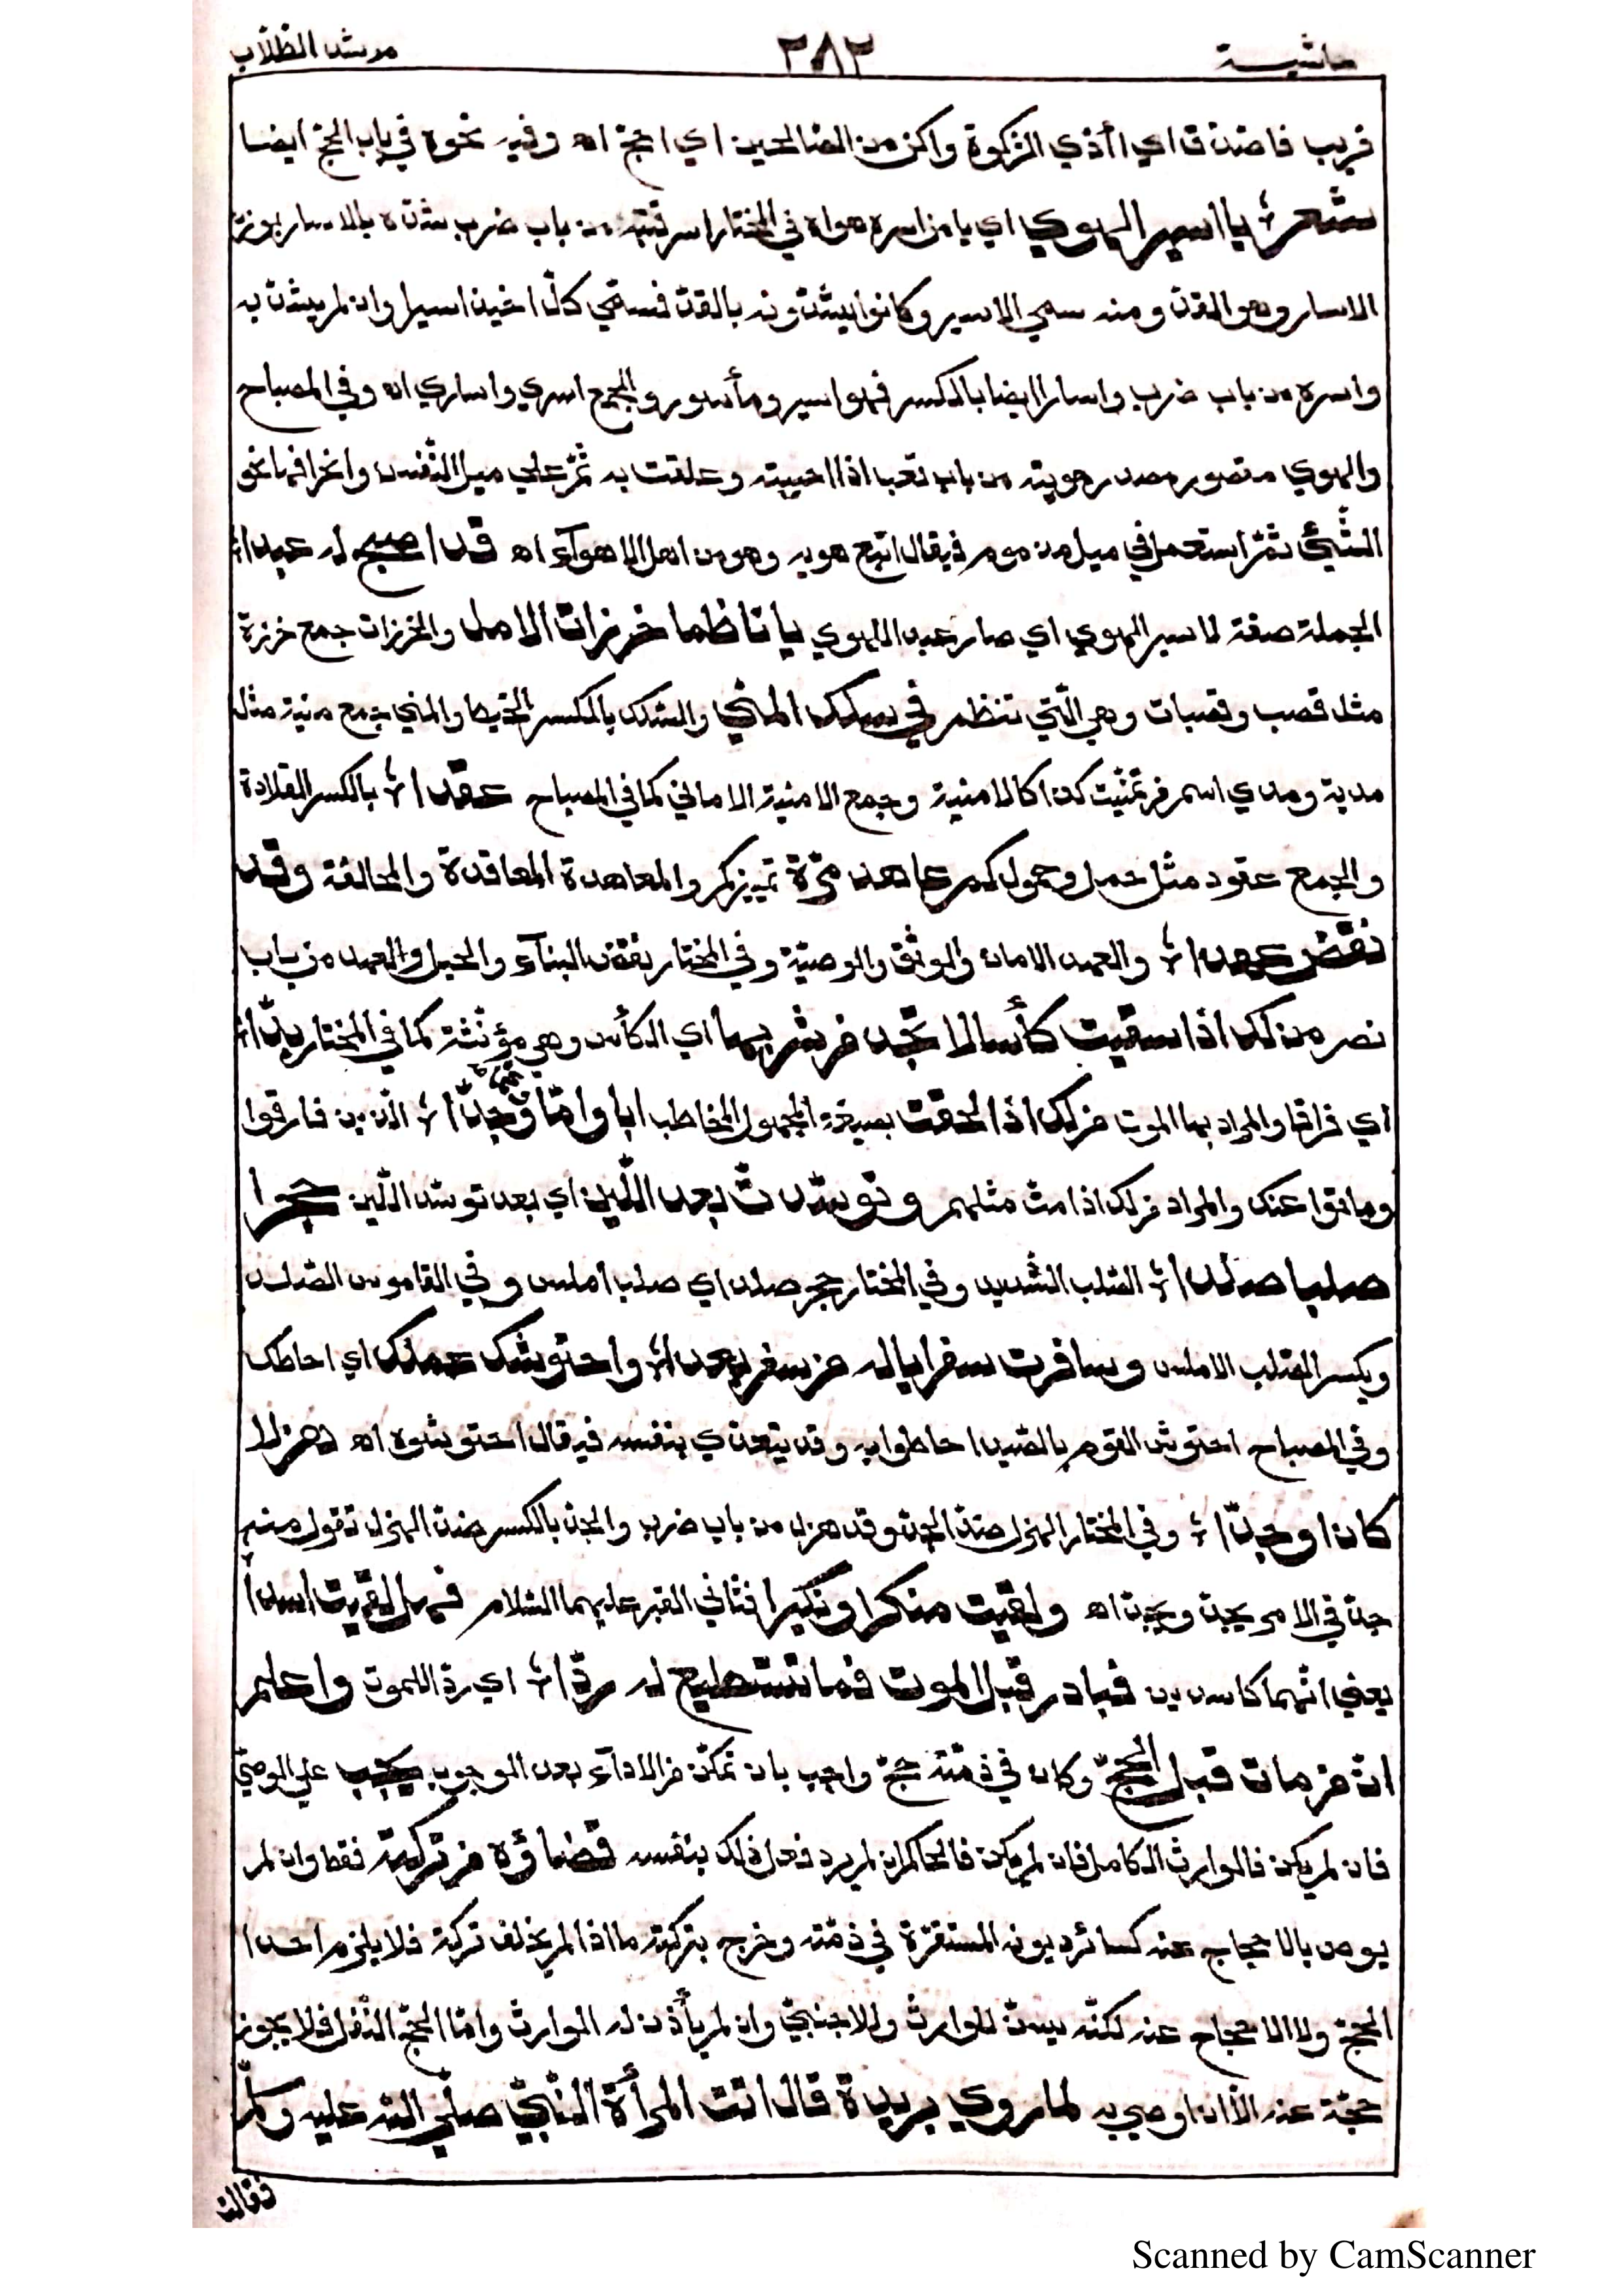 حاشية ٣٨٢ مرشد الطلاب
قريب فاصدق اي اأدّي الزكوة واكن من الصّالحين اي احجّ اه وفيه نحوه في باب الحجّ ايضا
شعر يا اسير الهوي اي يا من اسره هواه في المختار اسر قتبه من باب ضرب شدّه بالاسار بوزن
الازار وهو القدّ ومنه سمي الاسير وكانوا يشدّونه بالقدّ فسمّي كلّ اخيذ اسيرا وان لم يشدّ به
واسره من باب ضرب واسارا ايضا بالكسر فهو اسير ومأسور والجمع اسري واساري اه وفي المصباح
والهوي مقصور مصدر هويته من باب تعب اذا احببته وعلقت به ثمّ علي ميل النّفس وانحرافها نحو
الشّيئ ثمّ استعمل في ميل مذموم فيقال اتّبع هويه وهو من اهل الاهوآء اه قد اصبح له عبدا
الجملة صفة لاسير الهوي اي صار عبدا للهوي يا ناظما خرزات الامل والخرزات جمع خرزة
مثل قصب وقصبات وهي الّتي تنظم في سلك المني والسّلك بالكسر الخيط والمني جمع منية مثل
مدية ومدي اسم من تمنّيت كذا كالامنية وجمع الامنية الاماني كما في المصباح عقدا بالكسر القلادة
والجمع عقود مثل حمل وحمول كم عاهد مرّة تمييز كم والمعاهدة المعاقدة والمحالفة وقد
نقض عهدا والعهد الامان والموثق والوصيّة وفي المختار نقض البنآء والحبل والعهد من باب
نصر من لك اذا سقيت كأسا لا تجد من شربها اي الكأس وهي مؤنّثة كما في المختار بدّا
اي فراقا والمراد بها الموت من لك اذا لحقت بصيغة المجهول المخاطب ابا وامّا وجدّا الّذين فارقوا
وماتوا عنك والمراد من لك اذا متّ مثلهم وتوسّدت بعد اللّين اي بعد توسّد اللّين حجرا
صلبا صلدا الصّلب الشّديد وفي المختار حجر صلد اي صلب املس وفي القاموس الصّلد
ويكسر الصّلب الاملس وسافرت سفرا ياله من سفر بعدا واحتوشك عملك اي احاطك
وفي المصباح احتوش القوم بالصّيد احاطوا به وقد يتعدّي بنفسه فيقال احتوشوه اه هزلا
كان او جدّا وفي المختار الهزل ضدّ الجدّ وقد هزل من باب ضرب والجدّ بالكسر ضدّ الهزل تقول منه
جدّ في الامر يجدّ ويجدّ اه ولقيت منكرا ونكيرا فتّاني القبر عليهما السّلام فهل لقيت اسدا
يعني انّهما كاسدين فبادر قبل الموت فما تستطيع له ردّا اي ردّا للموت واعلم
انّ من مات قبل الحجّ وكان في ذمّته حجّ واجب بان تمكّن من الادآء بعد الوجوب يجب علي الوصيّ
فان لم يكن فالوارث الكامل فان لم يكن فالحاكم ان لم يرد فعل ذلك بنفسه قضاؤه من تركته فقط وان لم
يوص بالاحجاج عنه كسائر ديونه المستقرّة في ذمّته وخرج بتركته ما اذا لم يخلف تركة فلا يلزم احدا
الحجّ ولا الاحجاج عنه لكنّه يسنّ للوارث وللاجنبيّ وان لم يأذن له الوارث وامّا الحجّ النّفل فلا يجوز
حجّة عنه الاّ اذا اوصي به لما روي بريدة قال اتت امرأة النّبيّ صلّي اللّه عليه وسلّم
فقالت
Scanned by CamScanner